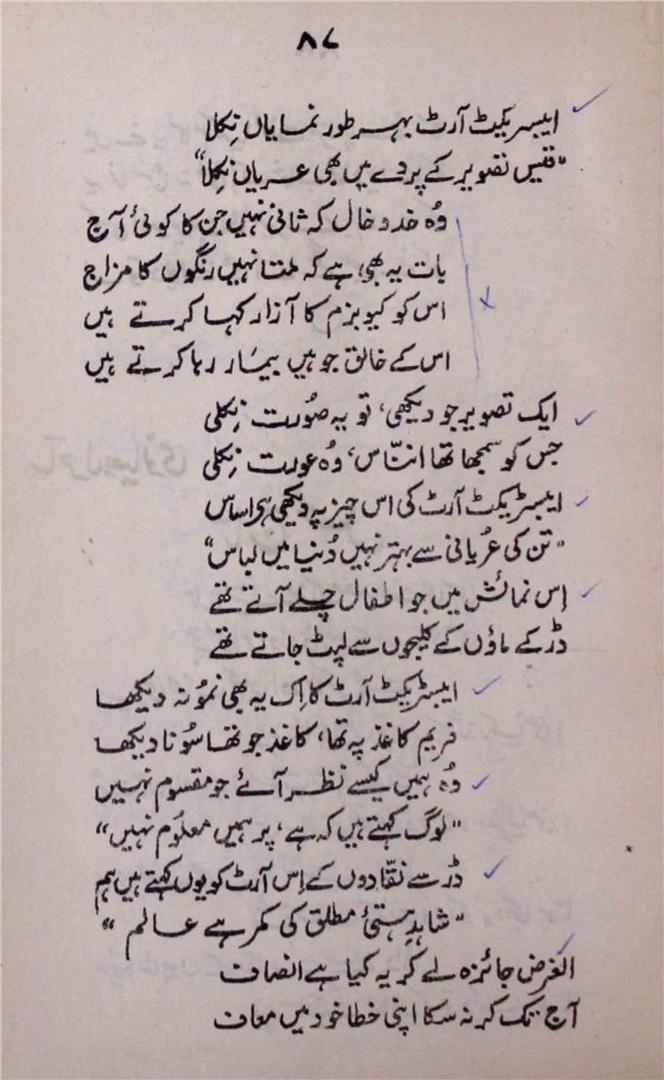 ۸۷
ایبسٹریکٹ آرٹ بہر طور نمایاں نِکلا
"قیس تصویر کے پردے میں بھی عریاں نِکلا"
وُہ خدوخال کہ ثانی نہیں جن کا کوئی آج
بات یہ بھی ہے کہ ملتا نہیں رنگوں کا مزاج
اس کو کیوبزم کا آزار کہا کرتے ہیں
اس کے خالق جو ہیں بیمار رہا کرتے ہیں
ایک تصویر جو دیکھی، تو یہ صُورت نِکلی
جس کو سمجھا تھا انناس، وُہ عورت نِکلی
ایبسٹریکٹ آرٹ کی اس چیز پہ دیکھی ہے اساس
"تن کی عُریانی سے بہتر نہیں دُنیا میں لباس"
اِس نمائش میں جو اطفال چلے آتے تھے
ڈر کے ماؤں کے کلیجوں سے لپٹ جاتے تھے
ایبسٹریکٹ آرٹ کا اِک یہ بھی نمُونہ دیکھا
فریم کاغذ پہ تھا، کاغذ جو تھا سُونا دیکھا
وُہ ہمیں کیسے نظر آئے جو مقسوم نہیں
"لوگ کہتے ہیں کہ ہے، پر ہمیں معلوم نہیں"
ڈر سے نقّادوں کے اِس آرٹ کو یوں کہتے ہیں ہم
"شاہدِ ہستئ مطلق کی کمر ہے عالم"
الغرض جائزہ لے کر یہ کیا ہے انصاف
آج تک کر نہ سکا اپنی خطا خود میں معاف